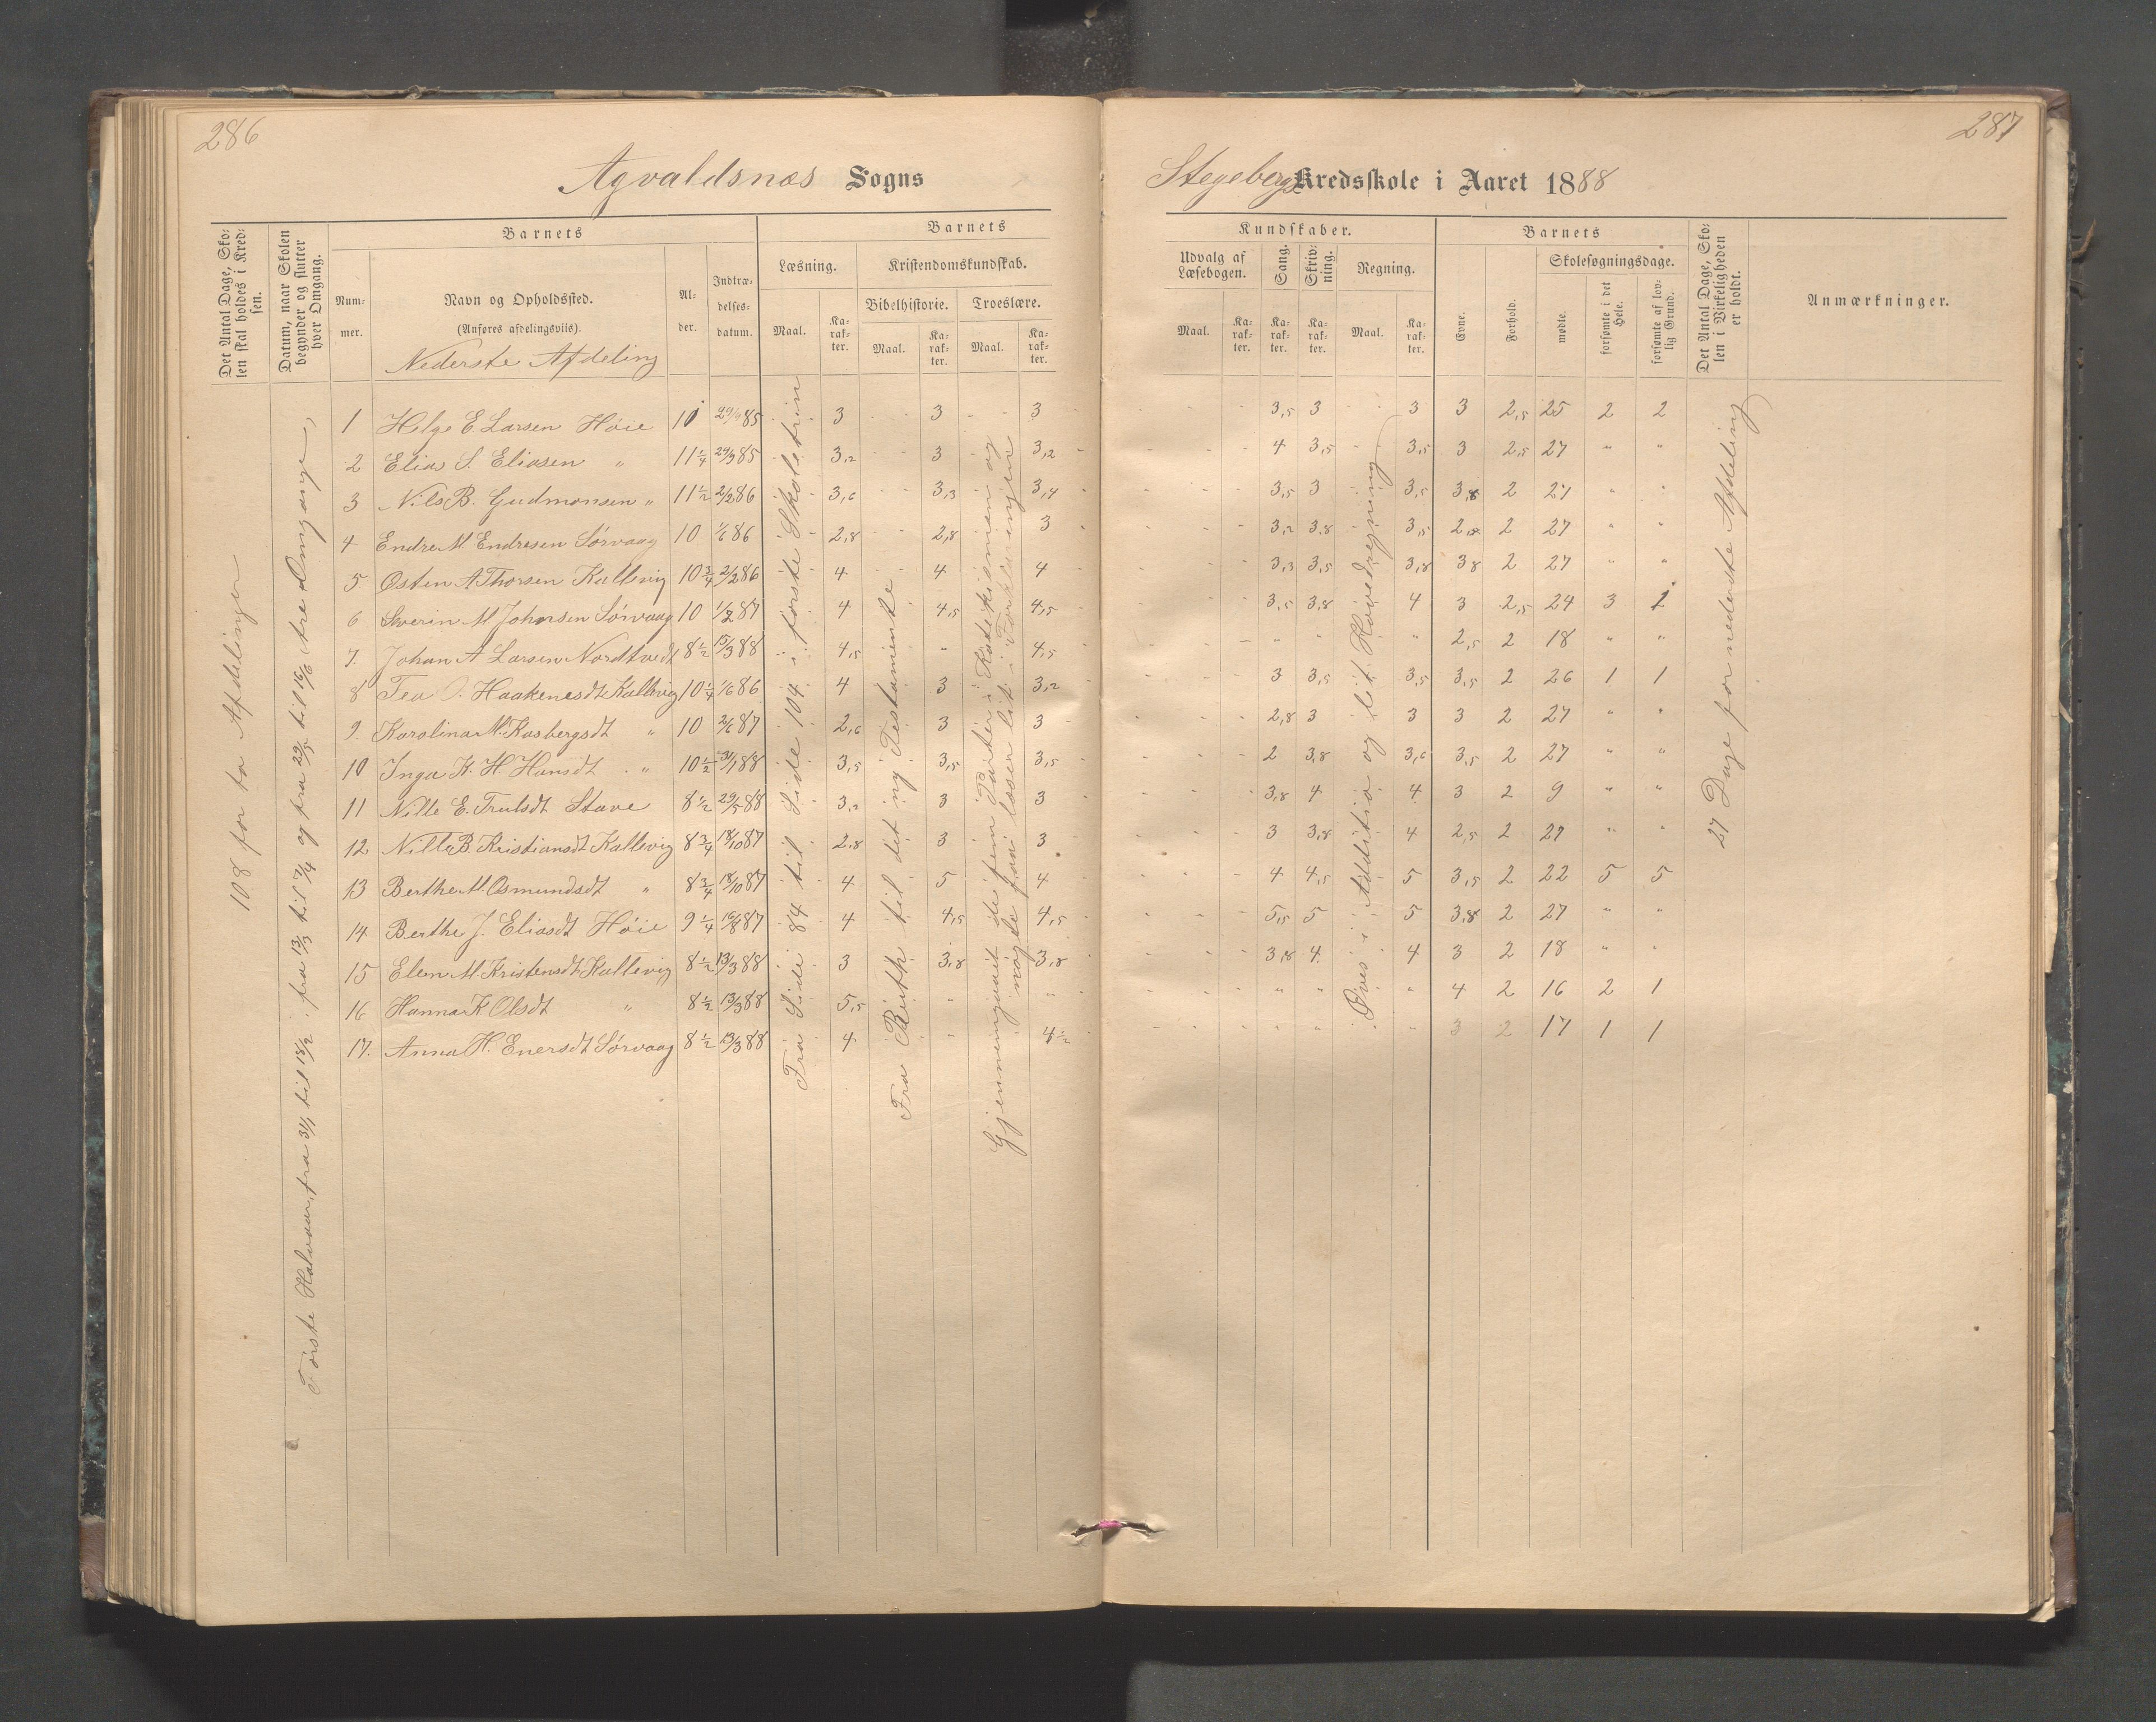 286
Agvaldsnæs Sogns
Det Antal Dage, Sko-
len skal holdes i Kred-
sen.
Datum, naar Skolen
begynder og slutter
hver Omgang.
Barnets
Num-
mer.
Navn og Opholdssted.
(Anføres afdelingsvis).
Nederste Afdeling
Al-
der.
Indtræ-
delses-
datum.
Barnets
Læsning.
Maal.
Ka-
rak-
ter.
Kristendomskundskab.
Bibelhistorie.
Maal.
Ka-
rak-
ter.
Troeslære.
Maal.
Ka-
rak-
ter.
108 for to Afdelinger
Første Halvaar, fra 31/1 til 18/2 . fra 13/3 til 7/4 og fra 29/5 til 16/6 , tre Omgange,
1 Helge E. Larsen Høie 10 29/9 85 3 3 3
2 Elias S. Eliasen " 11 1/4 29/3 85 3,2 3 3,2
3 Nils B. Gudmonsen " 11 1/2 2/2 86 3,6 3,3 3,4
4 Endre M. Endresen Sørvaag 10 1/6 86 2,8 2,8 3
5 Østen A Thorsen Kallevig 10 3/4 2/2 86 4 4 4
6 Severin M Johnsen Sørvaag 10 1/2 87 4 4,5 4,5
7. Johan A Larsen Nordtvedt 8 1/2 15/3 88 4,5 " 4,5
8 Tea O. Haakenesdt Kallevig 10 1/4 1/6 86 4 3 3,2
9. Karolina M. Kasbergsdt " 10 2/6 87 2,6 3 3
10 Inga K. H. Hansdt " 10 1/2 31/1 88 3,5 3,5 3,5
11 Nille E. Trulsdt Stave 8 1/2 29/5 88 3,2 3 3
12 Nille B. Kristiansdt Kallevig 8 3/4 18/10 87 2,8 3 3
13 Berthe M. Osmundsdt " 8 3/4 18/10 87 4 5 4
14 Berthe J. Eliasdt Høie 9 1/4 16/8 87 4 4,5 4,5
15 Elen M. Kristensdt Kallevig 8 1/2 13/3 88 3 3,8 3,8
16 Hanna K Olsdt " 8 1/2 13/3 88 5,5 " "
17. Anna H. Enersdt Sørvaag 8 1/2 13/3 88 4 " 4 1/2
Fra Side 84 til Side 104 i første Skoletrin
Fra Ruth til det ny Testamente
Gjennemgaaet de fem Parter i Katekismen og
nogle faa læser lit i Forklaringen
287
Stegebergs Kredsskole i Aaret 1888
Kundskaber.
Udvalg af
Læsebogen.
Maal.
Ka-
rak-
ter.
Sang.
Ka-
rak-
ter.
Skriv-
ning.
Ka-
rak-
ter.
Regning.
Maal.
Ka-
rak-
ter.
Barnets
Evne.
Forhold.
Skolesøgningsdage.
mødte.
forsømte i det
Hele.
forsømte af lov-
lig Grund.
Det Antal Dage, Sko-
len i Virkeligheden
er holdt.
Anmærkninger.
3,5 3 3 3 2,5 25 2 2
4 3,5 3,5 3 2,5 27 " "
3,5 3 3,5 3,8 2 27 " "
3,2 3,8 3,5 2,8 2 27 " "
3,3 3,5 3,8 3,8 2 27 " "
3,5 3,8 4 3 2,5 24 3 1
" " " 2,5 2 18 " "
3 3,5 3,5 3,5 2 26 1 1
2,8 3 3 3 2 27 " "
2 3,8 3,6 3,5 2 27 " "
3,8 4 4 3 2 9 " "
3 3,8 4 2,5 2 27 " "
4 4,5 5 3,5 2 22 5 5
5,5 5 5 3,8 2 27 " "
3,8 4 4 3 2 18 " "
" " " 4 2 16 2 1
" " " 3 2 17 1 1
Øves i Addition og lit Hovedregning
27 Dage for nederste Afdeling